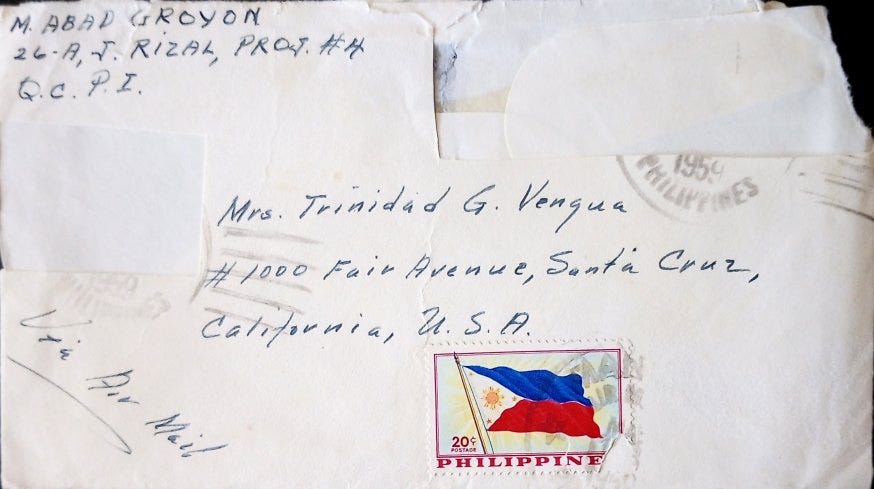 M. ABAD GROYON
26-A, J. RIZAL, PROJ. #4
Q.C. P.I.
1959
PHILIPPINES
Mrs. Trinidad G. Vengua
#1000 Fair Avenue, Santa Cruz,
California, U.S.A.
1959
PHILIPPINES
Via Air Mail
20¢
POSTAGE
PHILIPPINE